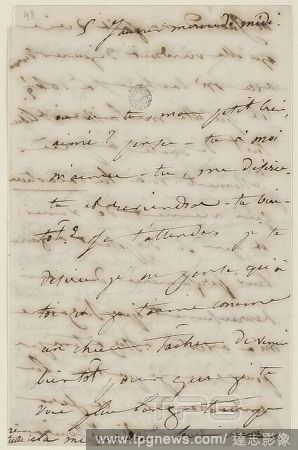 48
5 Janvier mercredi midi
où es-tu, mon petit bien
aimé? penses-tu à moi
m'aimes-tu, me désires-
tu et viendras-tu bien-
tôt? Je t'attends je te
désire je ne pense qu'à
toi et je t'aime comme
un chien. Tâche de venir
bientôt pour que je te
voie plus longtemps
cela me
TPG
www.tpgnews.com/達志影像